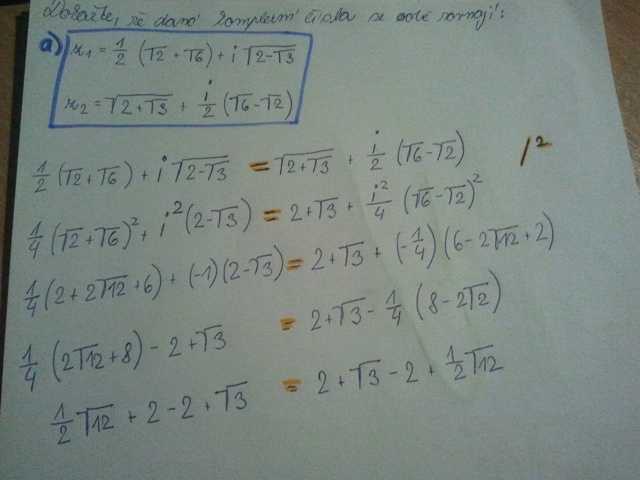 Dokažte, že daná komplexní čísla se sobě rovnají:
a) x₁ = 1/2 (√2 + √6) + i √(2-√3)
x₂ = √(2+√3) + i/2 (√6-√2)
1/2 (√2 + √6) + i √(2-√3) = √(2+√3) + i/2 (√6-√2) /²
1/4 (√2 + √6)² + i² (2-√3) = 2+√3 + i²/4 (√6-√2)²
1/4 (2+2√12+6) + (-1)(2-√3) = 2+√3 + (-1/4)(6-2√12+2)
1/4 (2√12+8) - 2+√3 = 2+√3 - 1/4 (8-2√2)
1/2 √12 + 2 - 2 + √3 = 2+√3 - 2 + 1/2 √12